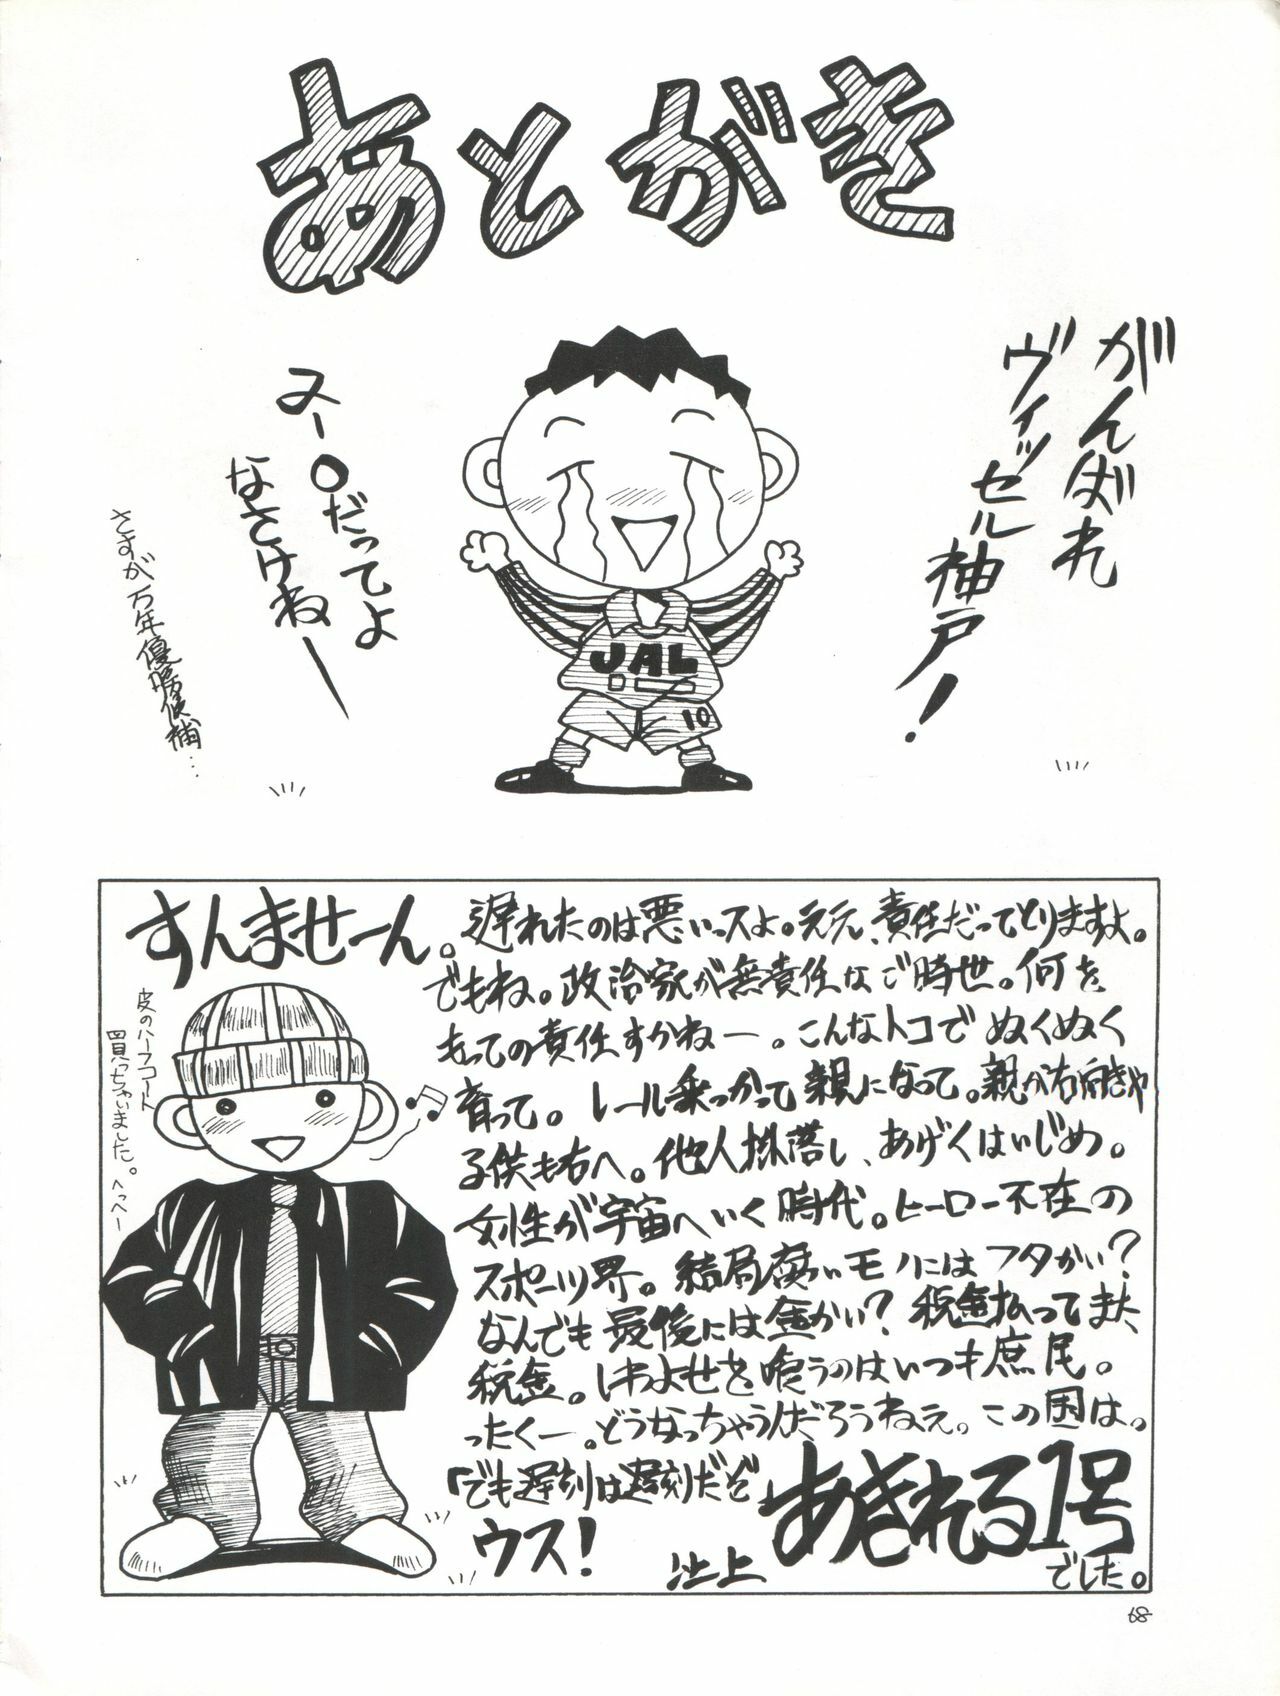 あとがき
がんばれ
ヴィッセル神戸!
ヌー○だってよ
なさけねー
さすが万年優勝候補…
JAL
10
すんませーん。
遅れたのは悪いっスよ。ええ、責任だってとりますよ。
でもね。政治家が無責任なご時世。何を
もっての責任すかねー。こんなトコでぬくぬく
育って。レール乗っかって親になって。親が右向きゃ
子供も右へ。他人蹴落し、あげくはいじめ。
女性が宇宙へいく時代。ヒーロー不在の
スポーツ界。結局腐いモノにはフタかい?
なんでも最後には金かい?税金払ってまた、
税金。しわよせを喰うのはいつも庶民。
ったくー。どうなっちゃうんだろうねえ。この国は。
「でも遅刻は遅刻だぞ」
ウス!
池上
あきれる1号
でした。
皮のハーフコート
買っちゃいました。へっへー
68